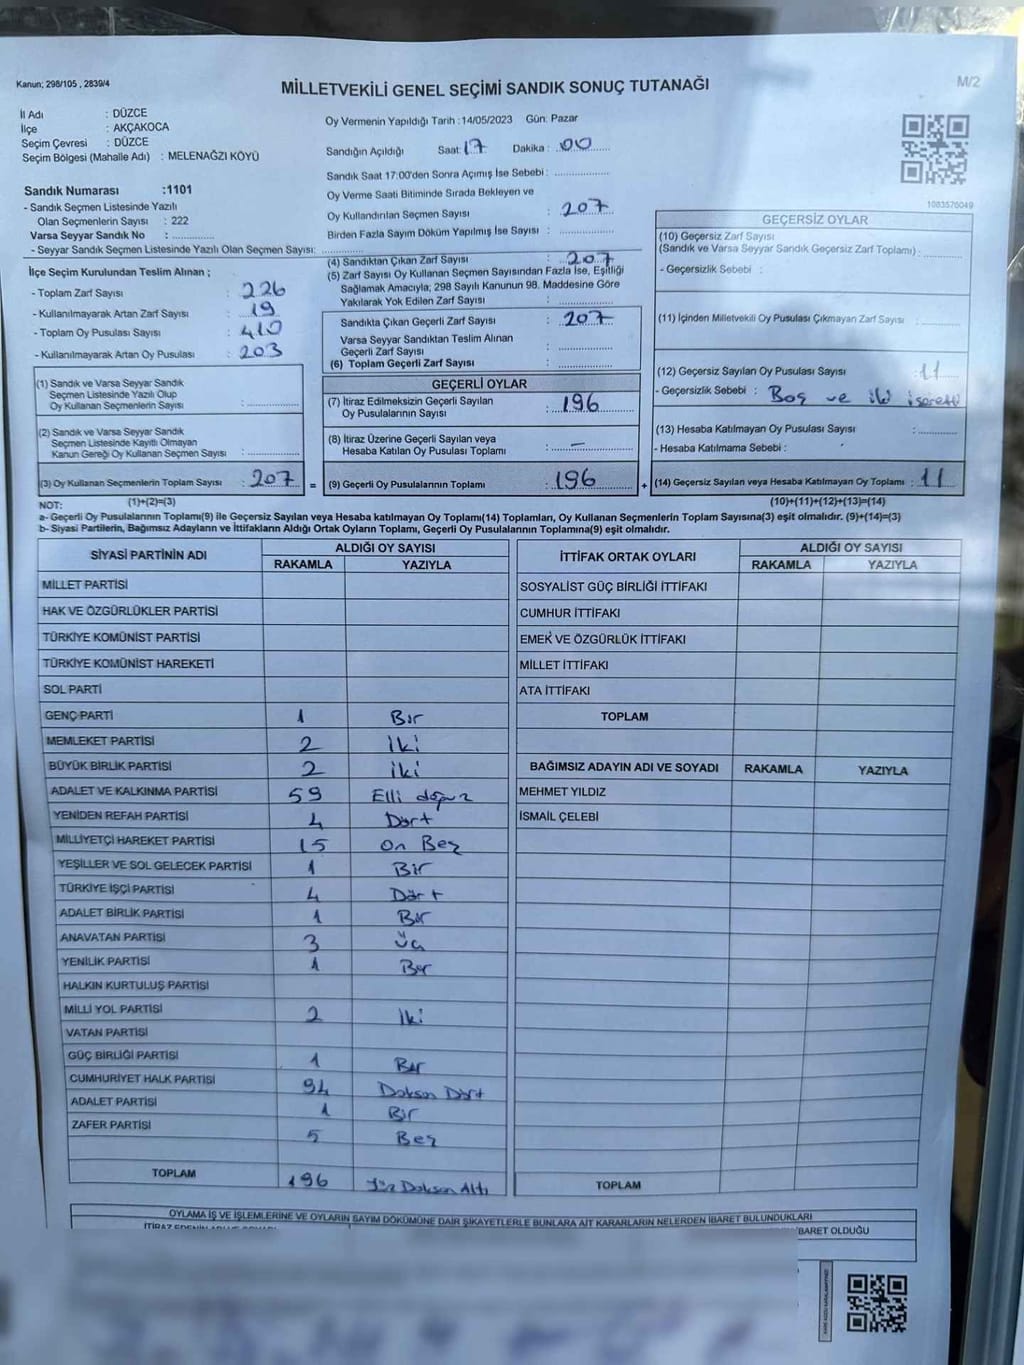 Kanun; 298/105 , 2839/4
MİLLETVEKİLİ GENEL SEÇİMİ SANDIK SONUÇ TUTANAĞI
M/2
İl Adı : DÜZCE
İlçe : AKÇAKOCA
Seçim Çevresi : DÜZCE
Seçim Bölgesi (Mahalle Adı) : MELENAĞZI KÖYÜ
Sandık Numarası :1101
- Sandık Seçmen Listesinde Yazılı
Olan Seçmenlerin Sayısı : 222
Varsa Seyyar Sandık No :
- Seyyar Sandık Seçmen Listesinde Yazılı Olan Seçmen Sayısı:
İlçe Seçim Kurulundan Teslim Alınan ;
- Toplam Zarf Sayısı : 226
- Kullanılmayarak Artan Zarf Sayısı : 19
- Toplam Oy Pusulası Sayısı : 410
- Kullanılmayarak Artan Oy Pusulası : 203
(1) Sandık ve Varsa Seyyar Sandık
Seçmen Listesinde Yazılı Olup
Oy Kullanan Seçmenlerin Sayısı :
(2) Sandık ve Varsa Seyyar Sandık
Seçmen Listesinde Kayıtlı Olmayan
Kanun Gereği Oy Kullanan Seçmen Sayısı :
(3) Oy Kullanan Seçmenlerin Toplam Sayısı : 207
Oy Vermenin Yapıldığı Tarih :14/05/2023 Gün: Pazar
Sandığın Açıldığı Saat: 17 Dakika : 00
Sandık Saat 17:00'den Sonra Açımış İse Sebebi :
Oy Verme Saati Bitiminde Sırada Bekleyen ve
Oy Kullandırılan Seçmen Sayısı : 207
Birden Fazla Sayım Döküm Yapılmış İse Sayısı :
(4) Sandıktan Çıkan Zarf Sayısı : 207
(5) Zarf Sayısı Oy Kullanan Seçmen Sayısından Fazla İse, Eşitliği
Sağlamak Amacıyla; 298 Sayılı Kanunun 98. Maddesine Göre
Yakılarak Yok Edilen Zarf Sayısı :
Sandıkta Çıkan Geçerli Zarf Sayısı : 207
Varsa Seyyar Sandıktan Teslim Alınan
Geçerli Zarf Sayısı :
(6) Toplam Geçerli Zarf Sayısı :
GEÇERLİ OYLAR
(7) İtiraz Edilmeksizin Geçerli Sayılan
Oy Pusulalarının Sayısı : 196
(8) İtiraz Üzerine Geçerli Sayılan veya
Hesaba Katılan Oy Pusulası Toplamı : —
= (9) Geçerli Oy Pusulalarının Toplamı : 196
1083576049
GEÇERSİZ OYLAR
(10) Geçersiz Zarf Sayısı
(Sandık ve Varsa Seyyar Sandık Geçersiz Zarf Toplamı) :
- Geçersizlik Sebebi :
(11) İçinden Milletvekili Oy Pusulası Çıkmayan Zarf Sayısı :
(12) Geçersiz Sayılan Oy Pusulası Sayısı : 11
- Geçersizlik Sebebi : Boş ve iki işaretli
(13) Hesaba Katılmayan Oy Pusulası Sayısı :
- Hesaba Katılmama Sebebi :
+ (14) Geçersiz Sayılan veya Hesaba Katılmayan Oy Toplamı : 11
NOT: (1)+(2)=(3) (10)+(11)+(12)+(13)=(14)
a- Geçerli Oy Pusulalarının Toplamı(9) ile Geçersiz Sayılan veya Hesaba katılmayan Oy Toplamı(14) Toplamları, Oy Kullanan Seçmenlerin Toplam Sayısına(3) eşit olmalıdır. (9)+(14)=(3)
b- Siyasi Partilerin, Bağımsız Adayların ve İttifakların Aldığı Ortak Oyların Toplamı, Geçerli Oy Pusulalarının Toplamına(9) eşit olmalıdır.
SİYASİ PARTİNİN ADI ALDIĞI OY SAYISI
RAKAMLA YAZIYLA
MİLLET PARTİSİ
HAK VE ÖZGÜRLÜKLER PARTİSİ
TÜRKİYE KOMÜNİST PARTİSİ
TÜRKİYE KOMÜNİST HAREKETİ
SOL PARTİ
GENÇ PARTİ 1 Bir
MEMLEKET PARTİSİ 2 İki
BÜYÜK BİRLİK PARTİSİ 2 İki
ADALET VE KALKINMA PARTİSİ 59 Elli doquz
YENİDEN REFAH PARTİSİ 4 Dört
MİLLİYETÇİ HAREKET PARTİSİ 15 On Beş
YEŞİLLER VE SOL GELECEK PARTİSİ 1 Bir
TÜRKİYE İŞÇİ PARTİSİ 4 Dört
ADALET BİRLİK PARTİSİ 1 Bir
ANAVATAN PARTİSİ 3 Üç
YENİLİK PARTİSİ 1 Bir
HALKIN KURTULUŞ PARTİSİ
MİLLİ YOL PARTİSİ 2 İki
VATAN PARTİSİ
GÜÇ BİRLİĞİ PARTİSİ 1 Bir
CUMHURİYET HALK PARTİSİ 94 Doksan Dört
ADALET PARTİSİ 1 Bir
ZAFER PARTİSİ 5 Beş
TOPLAM 196 Yüz Doksan Altı
İTTİFAK ORTAK OYLARI ALDIĞI OY SAYISI
RAKAMLA YAZIYLA
SOSYALİST GÜÇ BİRLİĞİ İTTİFAKI
CUMHUR İTTİFAKI
EMEK VE ÖZGÜRLÜK İTTİFAKI
MİLLET İTTİFAKI
ATA İTTİFAKI
TOPLAM
BAĞIMSIZ ADAYIN ADI VE SOYADI RAKAMLA YAZIYLA
MEHMET YILDIZ
İSMAİL ÇELEBİ
TOPLAM
OYLAMA İŞ VE İŞLEMLERİNE VE OYLARIN SAYIM DÖKÜMÜNE DAİR ŞİKAYETLERLE BUNLARA AİT KARARLARIN NELERDEN İBARET BULUNDUKLARI
BARET OLDUĞU